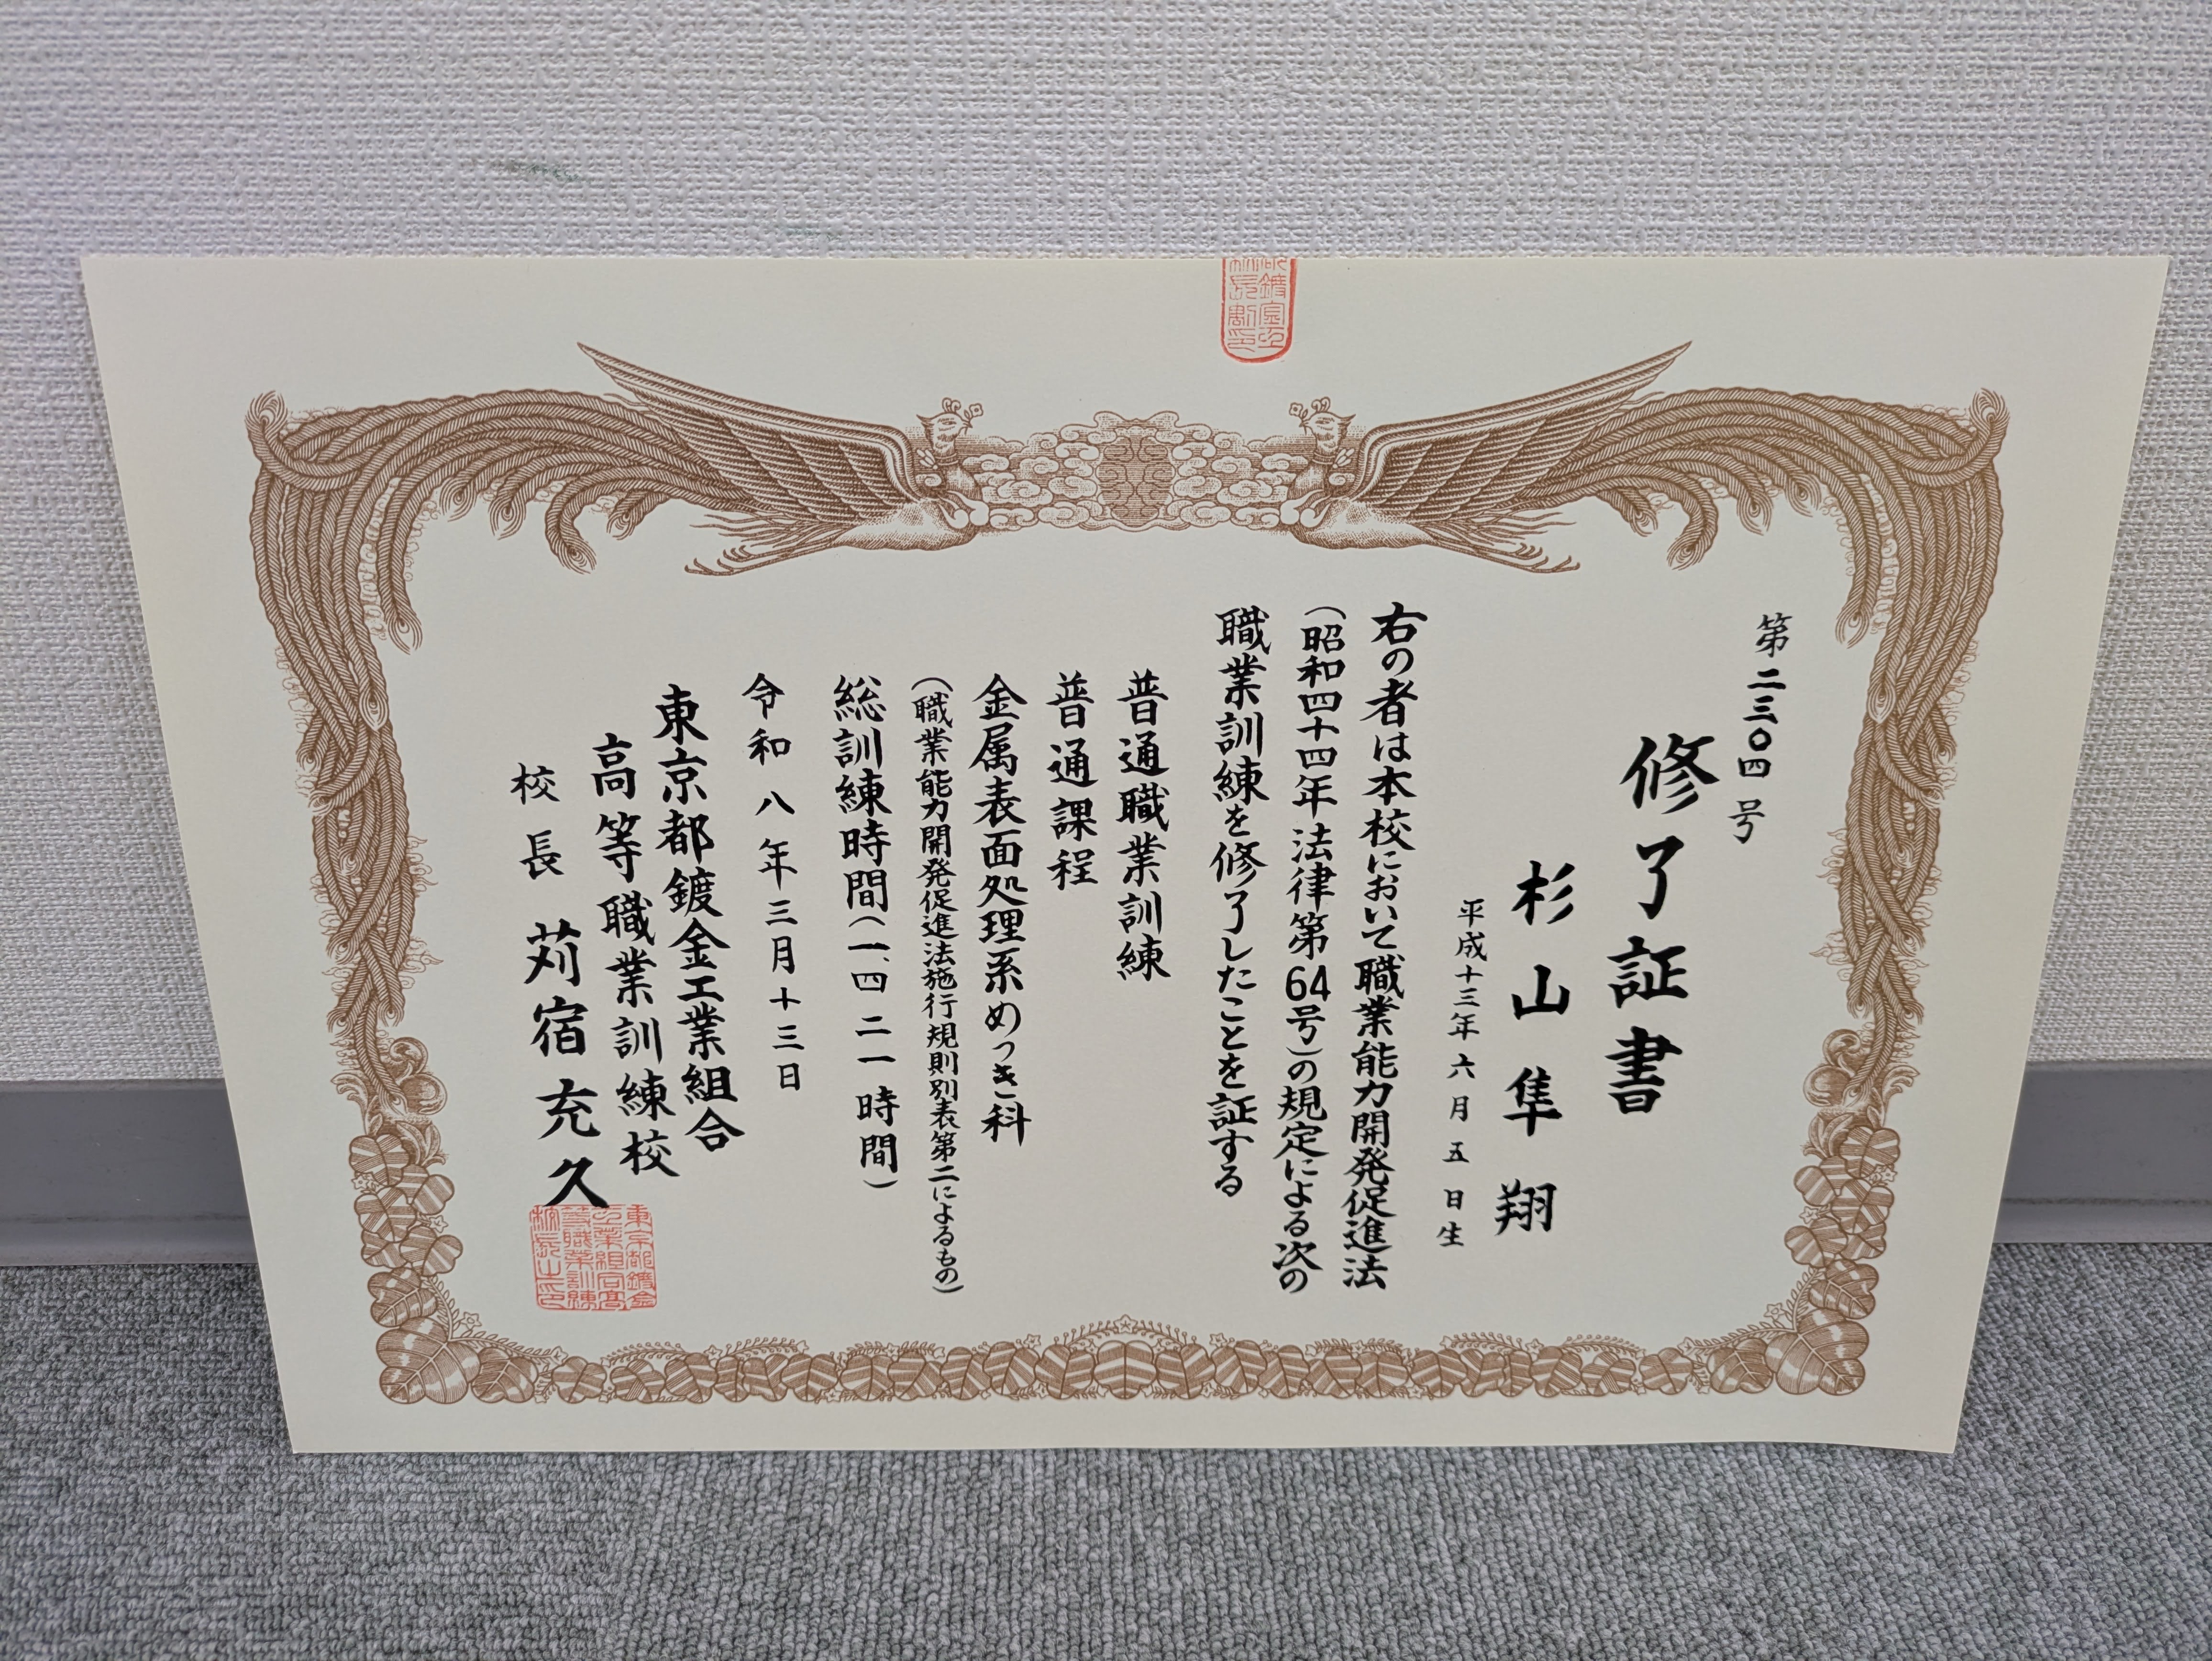 第二三〇四号
修了証書
杉山隼翔
平成十三年六月五日生
右の者は本校において職業能力開発促進法
(昭和四十四年法律第64号)の規定による次の
職業訓練を修了したことを証する
普通職業訓練
普通課程
金属表面処理系めっき科
(職業能力開発促進法施行規則別表第二によるもの)
総訓練時間(一、四二一時間)
令和八年三月十三日
東京都鍍金工業組合
高等職業訓練校
校長 苅宿充久
東京都鍍金
工業組合高
等職業訓練
校長之印